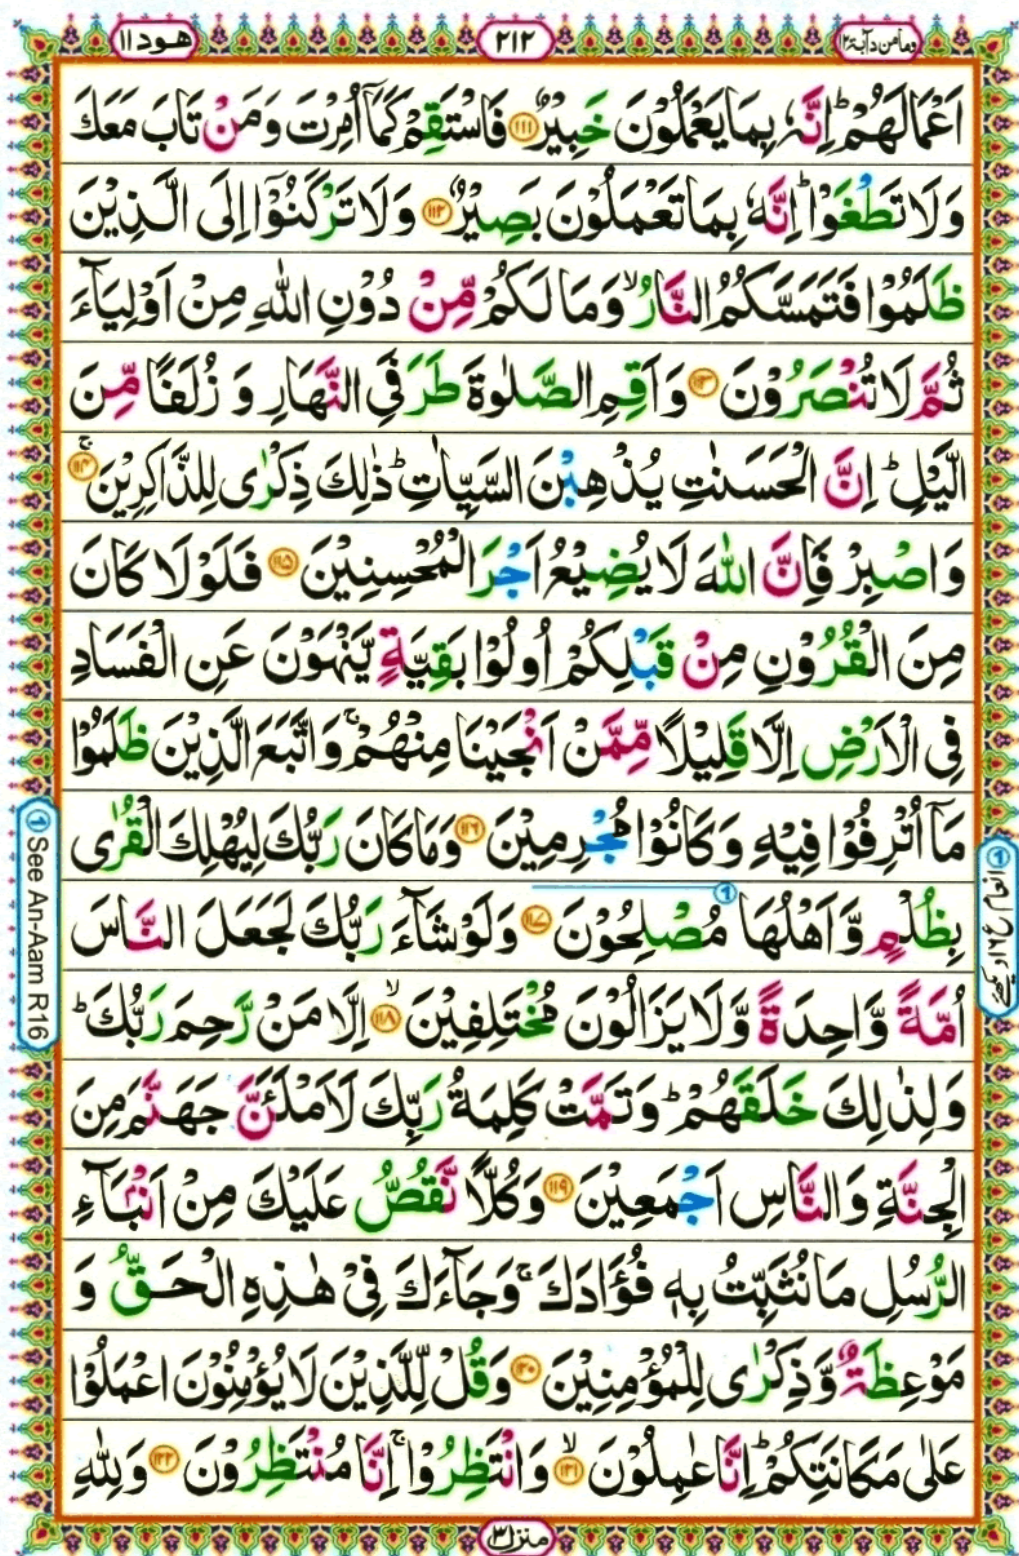 ومامن دآبة ١٢
٢١٢
هود ١١
اَعْمَالَهُمْ ؕ اِنَّهٗ بِمَا يَعْمَلُوْنَ خَبِيْرٌ ﴿۱۱۱﴾ فَاسْتَقِمْ كَمَاۤ اُمِرْتَ وَ مَنْ تَابَ مَعَكَ
وَ لَا تَطْغَوْا ؕ اِنَّهٗ بِمَا تَعْمَلُوْنَ بَصِيْرٌ ﴿۱۱۲﴾ وَ لَا تَرْكَنُوْۤا اِلَى الَّذِيْنَ
ظَلَمُوْا فَتَمَسَّكُمُ النَّارُ ۙ وَ مَا لَكُمْ مِّنْ دُوْنِ اللّٰهِ مِنْ اَوْلِيَآءَ
ثُمَّ لَا تُنْصَرُوْنَ ﴿۱۱۳﴾ وَ اَقِمِ الصَّلٰوةَ طَرَفَيِ النَّهَارِ وَ زُلَفًا مِّنَ
الَّيْلِ ؕ اِنَّ الْحَسَنٰتِ يُذْهِبْنَ السَّيِّاٰتِ ؕ ذٰلِكَ ذِكْرٰى لِلذّٰكِرِيْنَ ۚ ﴿۱۱۴﴾
وَ اصْبِرْ فَاِنَّ اللّٰهَ لَا يُضِيْعُ اَجْرَ الْمُحْسِنِيْنَ ﴿۱۱۵﴾ فَلَوْ لَا كَانَ
مِنَ الْقُرُوْنِ مِنْ قَبْلِكُمْ اُولُوْا بَقِيَّةٍ يَّنْهَوْنَ عَنِ الْفَسَادِ
فِى الْاَرْضِ اِلَّا قَلِيْلًا مِّمَّنْ اَنْجَيْنَا مِنْهُمْ ۚ وَ اتَّبَعَ الَّذِيْنَ ظَلَمُوْا
مَاۤ اُتْرِفُوْا فِيْهِ وَ كَانُوْا مُجْرِمِيْنَ ﴿۱۱۶﴾ وَ مَا كَانَ رَبُّكَ لِيُهْلِكَ الْقُرٰى
بِظُلْمٍ وَّ اَهْلُهَا مُصْلِحُوْنَ ﴿۱۱۷﴾ ① وَ لَوْ شَآءَ رَبُّكَ لَجَعَلَ النَّاسَ
اُمَّةً وَّاحِدَةً وَّ لَا يَزَالُوْنَ مُخْتَلِفِيْنَ ۙ ﴿۱۱۸﴾ اِلَّا مَنْ رَّحِمَ رَبُّكَ ؕ
وَ لِذٰلِكَ خَلَقَهُمْ ؕ وَ تَمَّتْ كَلِمَةُ رَبِّكَ لَاَمْلَـَٔنَّ جَهَنَّمَ مِنَ
الْجِنَّةِ وَ النَّاسِ اَجْمَعِيْنَ ﴿۱۱۹﴾ وَ كُلًّا نَّقُصُّ عَلَيْكَ مِنْ اَنْۢبَآءِ
الرُّسُلِ مَا نُثَبِّتُ بِهٖ فُؤَادَكَ ۚ وَ جَآءَكَ فِيْ هٰذِهِ الْحَقُّ وَ
مَوْعِظَةٌ وَّ ذِكْرٰى لِلْمُؤْمِنِيْنَ ﴿۱۲۰﴾ وَ قُلْ لِّلَّذِيْنَ لَا يُؤْمِنُوْنَ اعْمَلُوْا
عَلٰى مَكَانَتِكُمْ ؕ اِنَّا عٰمِلُوْنَ ۙ ﴿۱۲۱﴾ وَ انْتَظِرُوْا ۚ اِنَّا مُنْتَظِرُوْنَ ﴿۱۲۲﴾ وَ لِلّٰهِ
① See An-Aam R16
① انعام ع ١٦ دیکھئے
منزل ٣